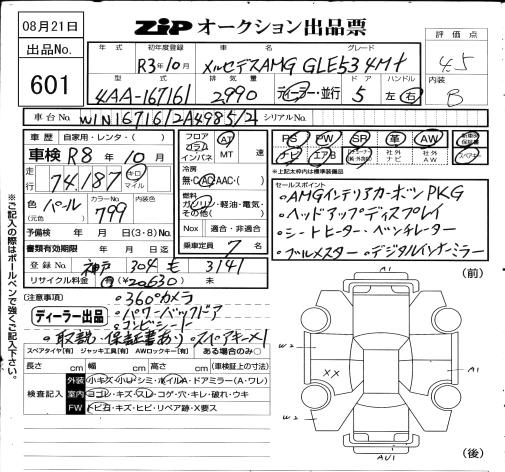 08月21日
出品No.
601
ZIP オークション出品票
評価点
4.5
内装
B
年式 初年度登録 車名 グレード
R3年10月 メルセデスAMG GLE53 4M+
型式 排気量 ドア ハンドル
4AA-167161 2,990 ディーラー・並行 5 左 右
車台No. W1N1671612A498512 シリアルNo.
車歴 自家用・レンタ・( )
車検 R8年10月
走行 74,187 キロ マイル
色 パール (元色) カラーNo. 799 内装色
予備検 年 月 日(3・8)No.
書類有効期限 年 月 日迄
登録No. 神戸 304 も 3141
リサイクル料金 有(¥20,630) 未
フロア コラム インパネ AT MT 速
冷房 無・C・AC・AAC・( )
燃料 ガソリン・軽油・電気・その他( )
Nox 適合・非適合
乗車定員 7 名
PS PW SR 革 AW 新車時保証書
ナビ エアB 社外ナビ 社外AW スペアキー
*上記太枠内は標準装備品
セールスポイント
・AMGインテリアカーボンPKG
・ヘッドアップディスプレイ
・シートヒーター・ベンチレーター
・ブルメスター ・デジタルインナーミラー
※ご記入の際はボールペンで強くご記入下さい。
(注意事項)
ディーラー出品
・360°カメラ
・パワーバックドア
・コンビシート
・取説・保証書あり ・スペアキー×1
スペアタイヤ[有] ジャッキ工具[有] AWロックキー[有] ある場合のみ○
長さ cm 幅 cm 高さ cm (車検証上の寸法)
検査記入
外装 小キズ・小凹・シミ・ホイルA・ドアミラー(A・ワレ)
室内 ヨゴレ・キズ・スレ・コゲ・穴・キレ・破れ・ウキ
FW トビ石・キズ・ヒビ・リペア跡・X要ス
(前)
A1
W2
XX
A1
W2
AU1
(後)